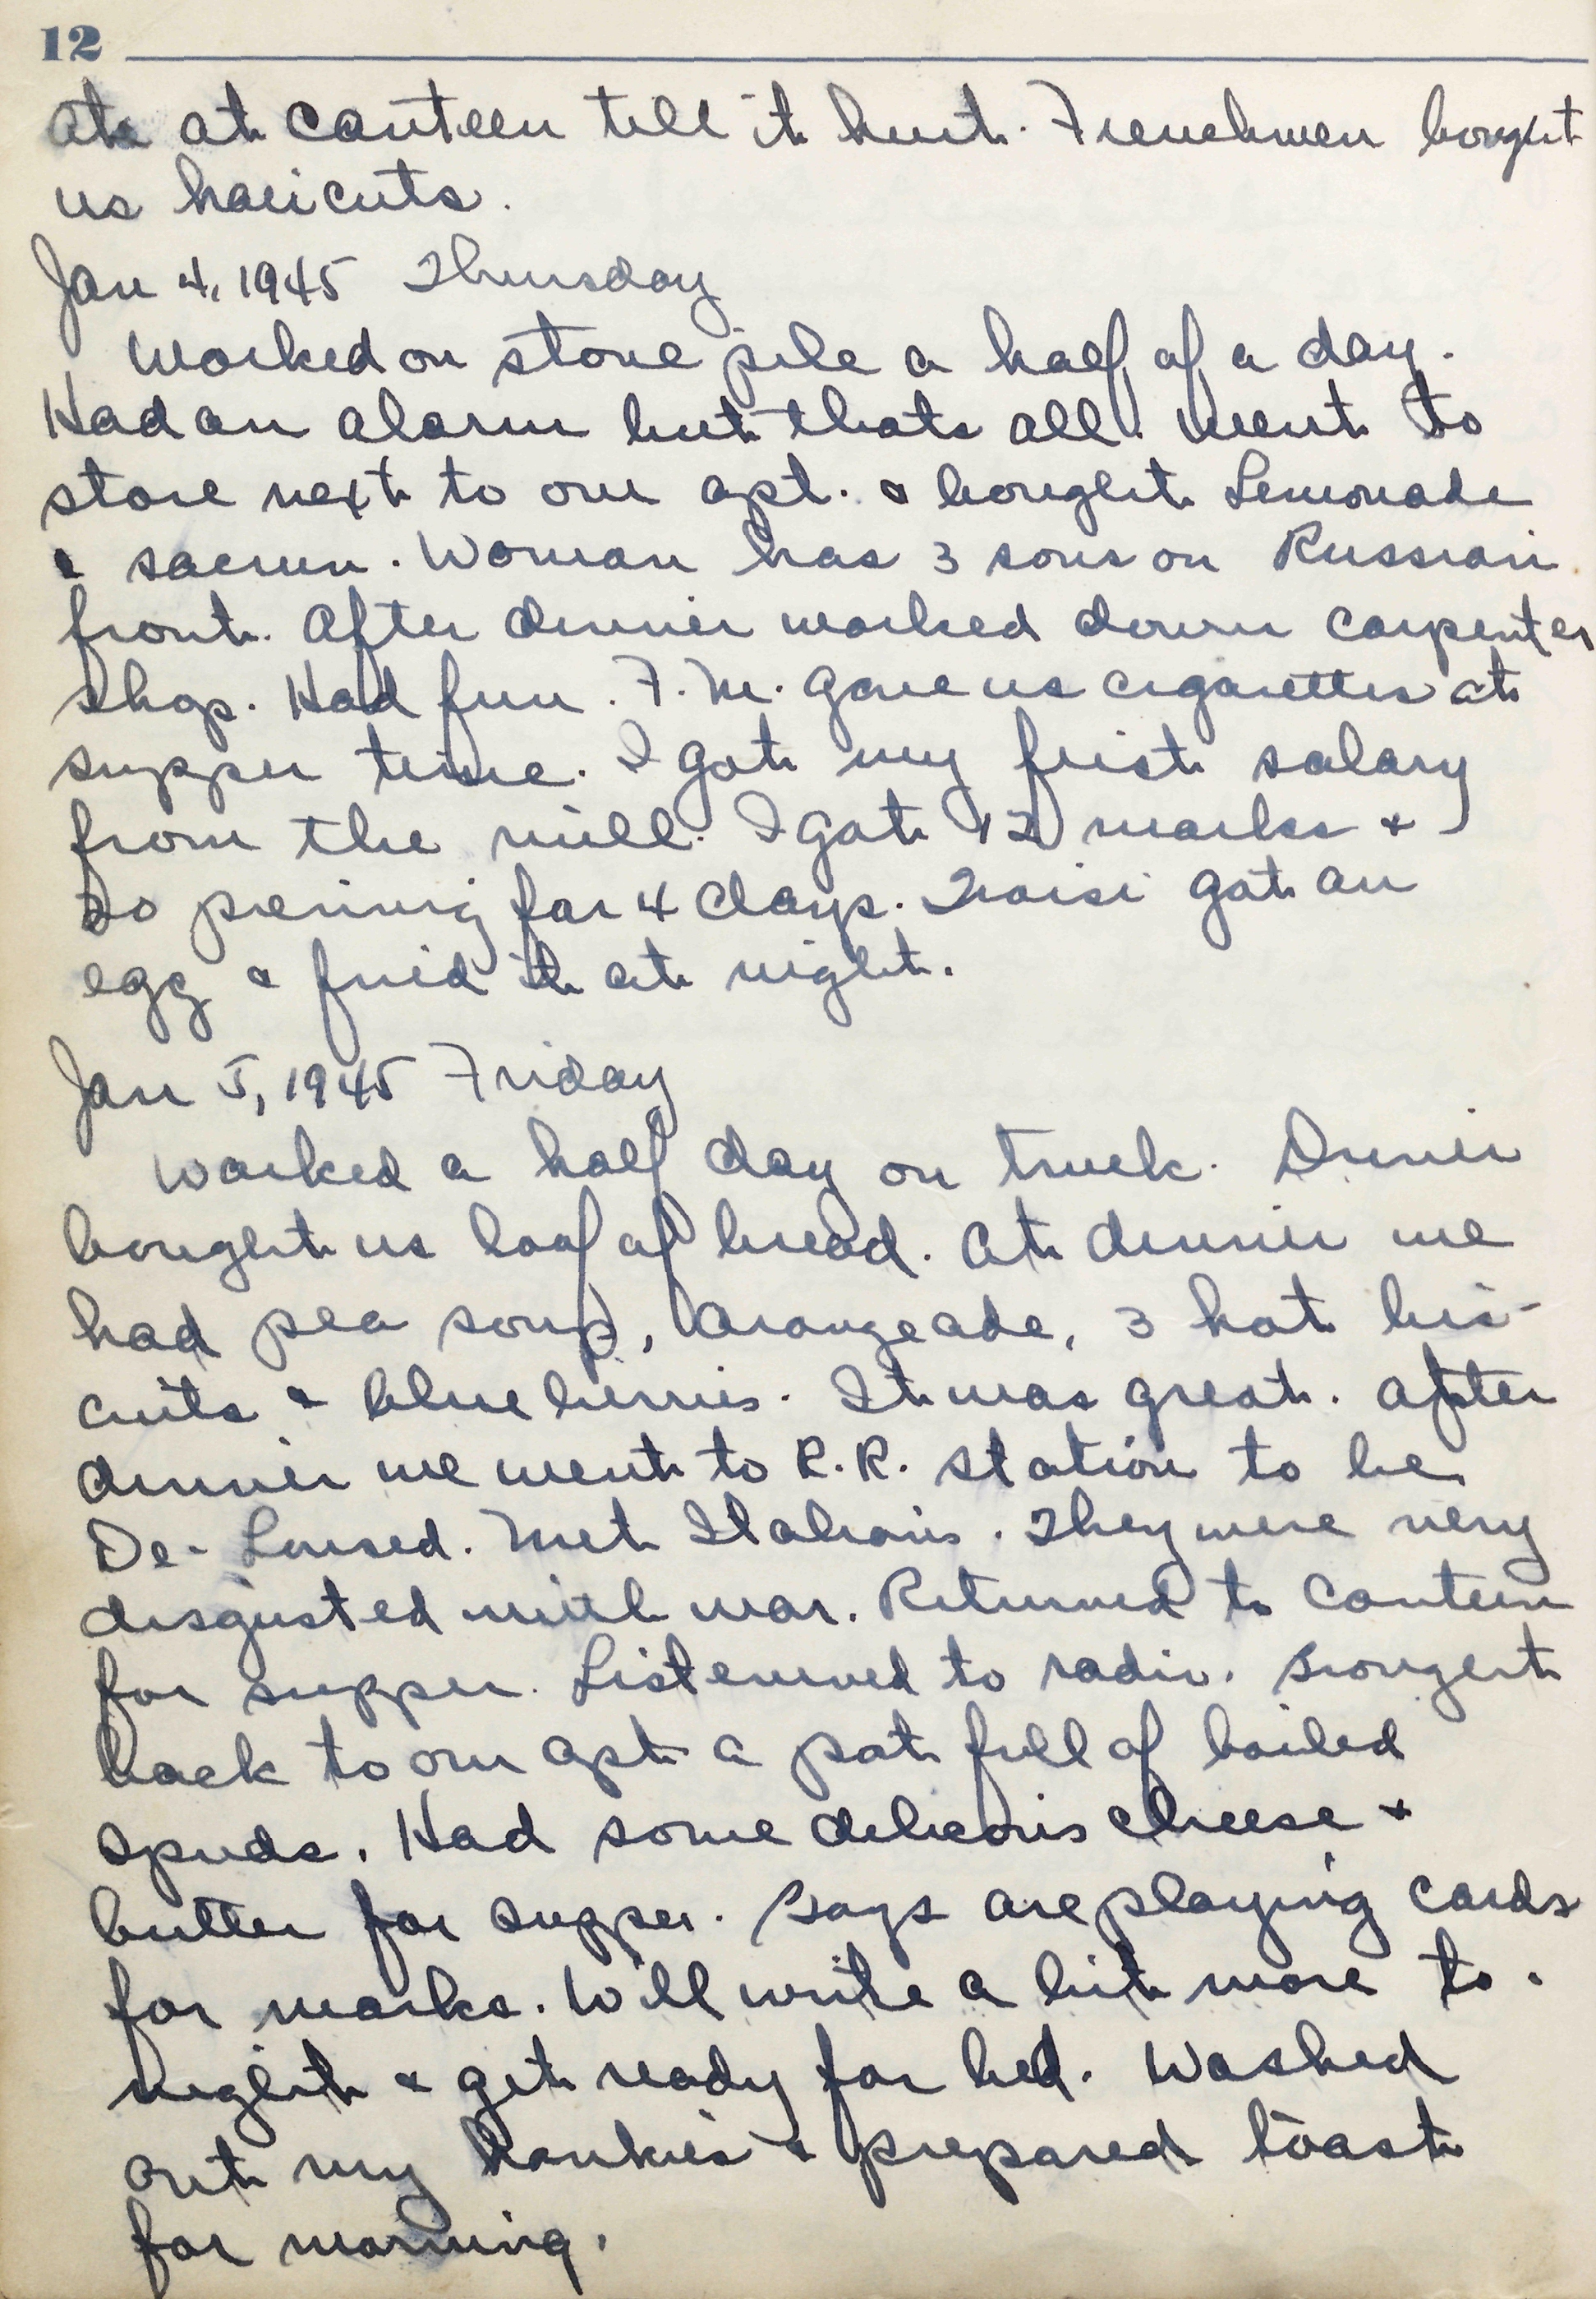 12
Ate at canteen till it hurt. Frenchmen bought
us haircuts.
Jan 4, 1945 Thursday
Worked on stone pile a half of a day.
Had an alarm but thats all. Went to
store next to our apt. & bought Lemonade
& . Woman has 3 sons on Russian
front. After dinner worked down carpenter
shop. Had fun. F.M. gave us cigarettes at
supper time. I got my first salary
from the mill. I got 12 marks &
20 for 4 days. got an
egg & fried it at night.
Jan 5, 1945 Friday
Worked a half day on truck.
bought us loaf of bread. At dinner we
had pea soup, orangeade, 3 hot bis-
cuits & blueberries. It was great. After
dinner we went to R.R. station to be
De-Loused. Met Italians. They were very
disgusted with war. Returned to canteen
for supper. Listenened to radio. Brought
back to our apt a pot full of boiled
spuds. Had some delicious cheese &
butter for supper. Boys are playing cards
for marks. Will write a bit more to-
night & get ready for bed. Washed
out my hankies & prepared toast
for morning.